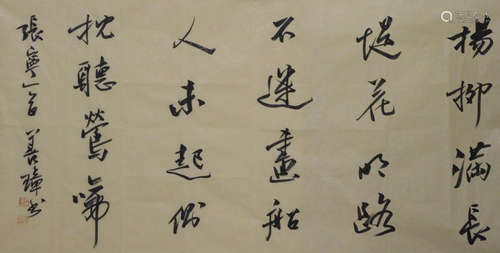 楊柳滿長
堤花明路
不迷畫船
人未起側
枕聽鶯啼
張寧一首善璋書